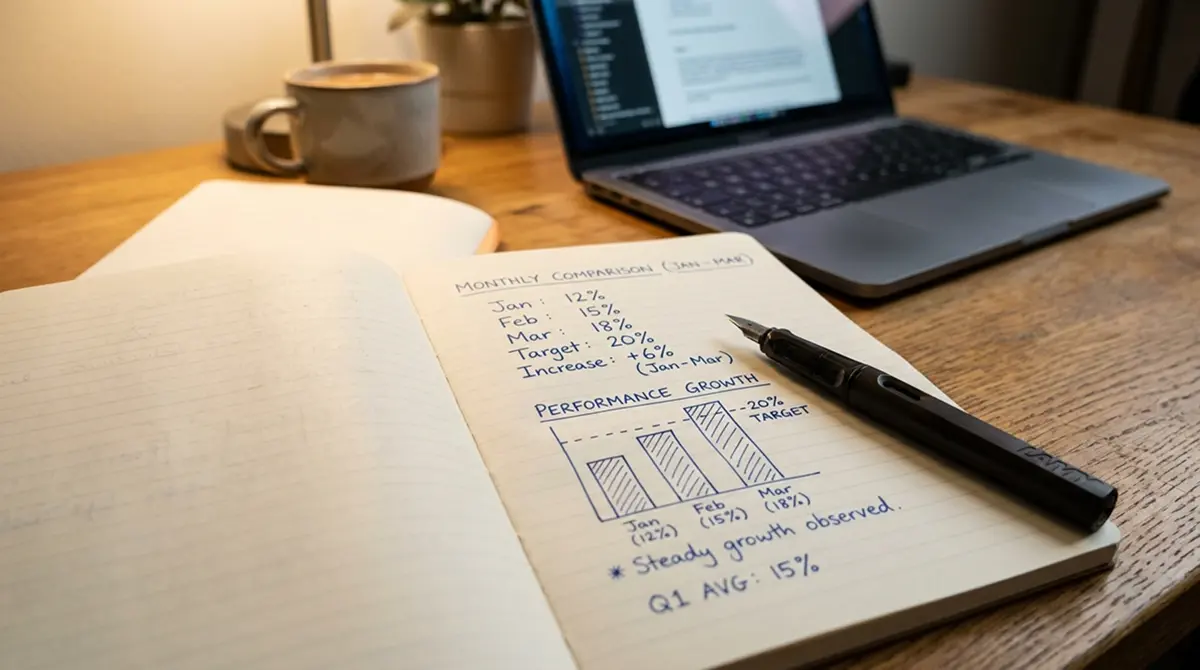 MONTHLY COMPARISON (JAN - MAR)
Jan : 12%
Feb : 15%
Mar : 18%
Target: 20%
Increase: +6%
(Jan-Mar)
PERFORMANCE GROWTH
--20%
TARGET
Jan
(12%)
Feb
(15%)
Mar
(18%)
* Steady growth observed.
Q1 AVG: 15%
LAMY